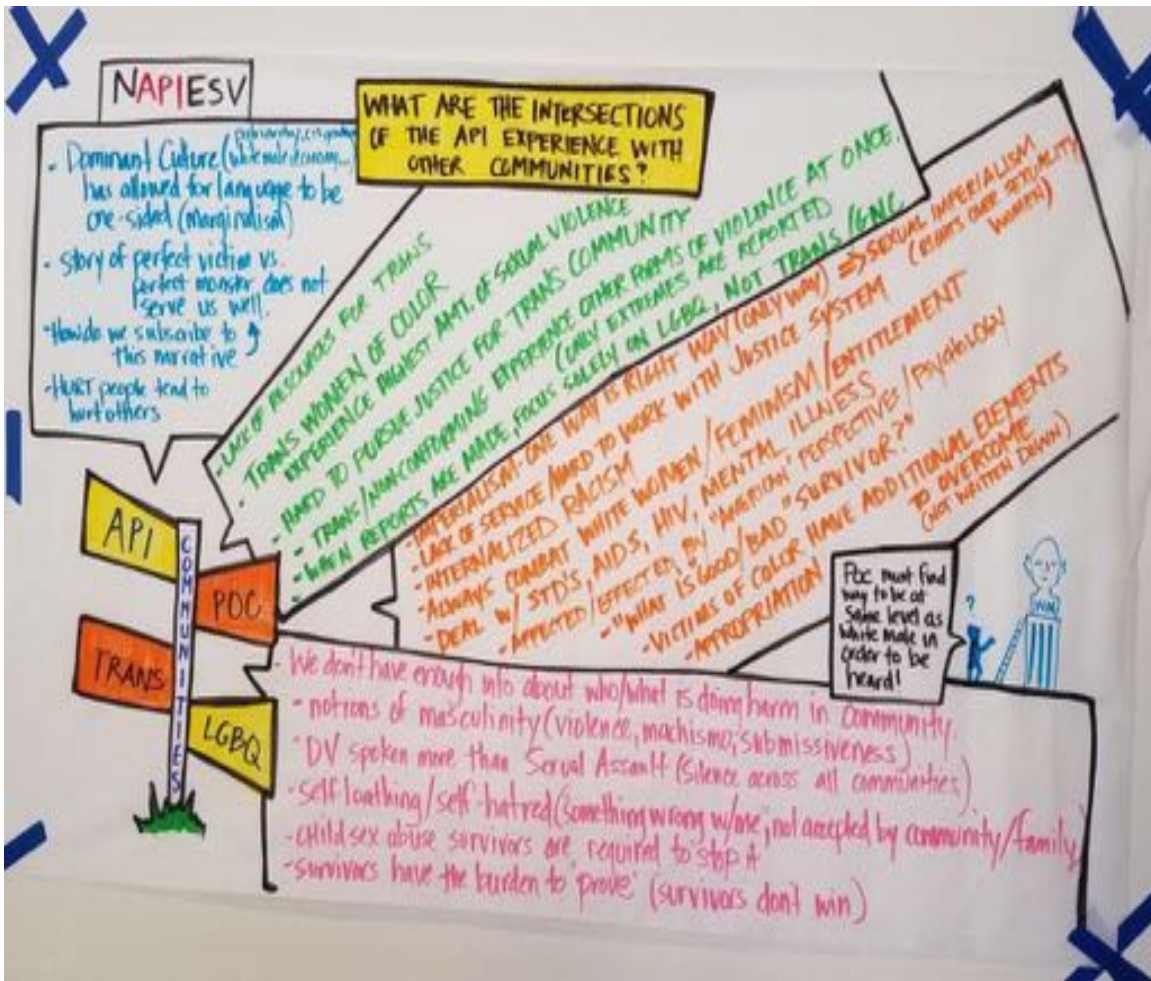 NAPIESV
WHAT ARE THE INTERSECTIONS
OF THE API EXPERIENCE WITH
OTHER COMMUNITIES?
- Dominant Culture (
white male economy...)
has allowed for language to be
one-sided (marginalism)
- story of perfect victim vs.
perfect monster does not
serve us well.
- How do we subscribe to
this narrative
- HURT people tend to
hurt others
- LACK OF RESOURCES FOR TRANS
- TRANS WOMEN OF COLOR
EXPERIENCE HIGHEST AMT. OF SEXUAL VIOLENCE
- HARD TO PURSUE JUSTICE FOR TRANS COMMUNITY
- TRANS/NON-CONFORMING EXPERIENCE OTHER FORMS OF VIOLENCE AT ONCE.
(ONLY EXTREMES ARE REPORTED
- WHEN REPORTS ARE MADE, FOCUS SOLELY ON LGBQ, NOT TRANS/GNC
- IMPERIALISM - ONE WAY IS RIGHT WAY (ONLY WAY) => SEXUAL IMPERIALISM
(RIGHTS OVER SEXUALITY
WOMEN)
- LACK OF SERVICE/HARD TO WORK WITH JUSTICE SYSTEM
- INTERNALIZED RACISM
- ALWAYS COMBAT WHITE WOMEN/FEMINISM/ENTITLEMENT
- DEAL W/ STD'S, AIDS, HIV, MENTAL ILLNESS
- AFFECTED/EFFECTED BY "AMERICAN" PERSPECTIVES/PSYCHOLOGY
- "WHAT IS GOOD/BAD "SURVIVOR?"
- VICTIMS OF COLOR HAVE ADDITIONAL ELEMENTS
TO OVERCOME
(NOT WRITTEN DOWN)
- APPROPRIATION
API
POC
TRANS
LGBQ
COMMUNITIES
POC must find
way to be at
same level as
white male in
order to be
heard!
?
WM
- We don't have enough info about who/what is doing harm in community.
- notions of masculinity (violence, machismo, submissiveness)
- DV spoken more than Sexual Assault (Silence across all communities)
- self loathing/self-hatred (something wrong w/me, not accepted by community/family)
- child sex abuse survivors are required to "stop it
- survivors have the burden to "prove" (survivors don't win)